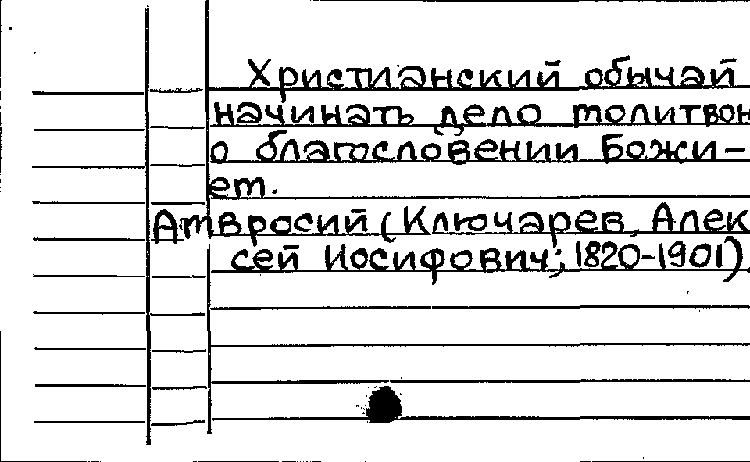 Христианский обычай
начинать дело молитвой
о благословении Божи-
ем.
Амвросий (Ключарев, Алек
сей Иосифович; 1820-1901).